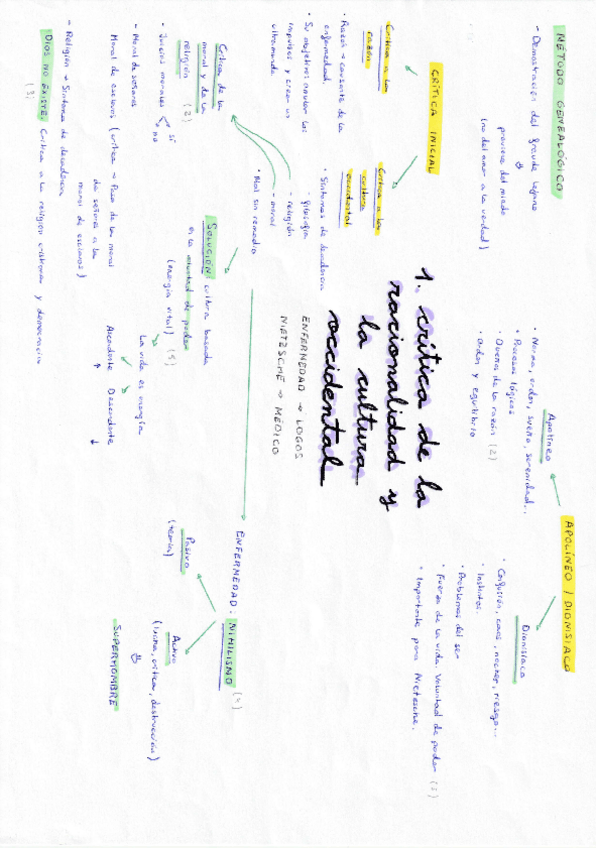 MÉTODO GENEALÓGICO
- Demostración del grande logano
proviene del miedo
(no del amor a la verdad)
APOLÍNEO / DIONISIACO
Apolíneo
• Norma, orden, sueño, serenidad...
• Procesos lógicos
• Dueños de la razón (2)
• Orden y equilibrio
Dionisíaco
• Confusión, caos, noches, riesgo...
• Instintos.
• Problemas del ser
• Fuerza de la vida. Voluntad de poder
• Importante para Nietzsche.
CRÍTICA INICIAL
Crítica a la
razón
• Razón → causante de la
enfermedad.
• Su objetivo es anular los
impulsos y crear un
ultramundo
Crítica a la
cultura
occidental
• Síntomas de decadencia
- filosofía
- religión
- moral
• Mal sin remedio
1. crítica de la
racionalidad y
la cultura
occidental
ENFERMEDAD → LOGOS
NIETZSCHE → MÉDICO
Crítica de la
moral y de la
religión (2)
• Juicios morales
sí
no
- Moral de señores
Moral de esclavos (crítica → Paso de la moral
de señores a la
moral de esclavos)
- Religión → Síntoma de decadencia
DIOS NO EXISTE. Crítica a la religión cristiana y democracia
(3)
SOLUCIÓN: cultura basada
en la voluntad de poder
(energía vital) (5)
La vida es energía
Ascendente Descendente
ENFERMEDAD: NIHILISMO
Pasivo
Activo
(lucha, crítica, destrucción)
SUPERHOMBRE